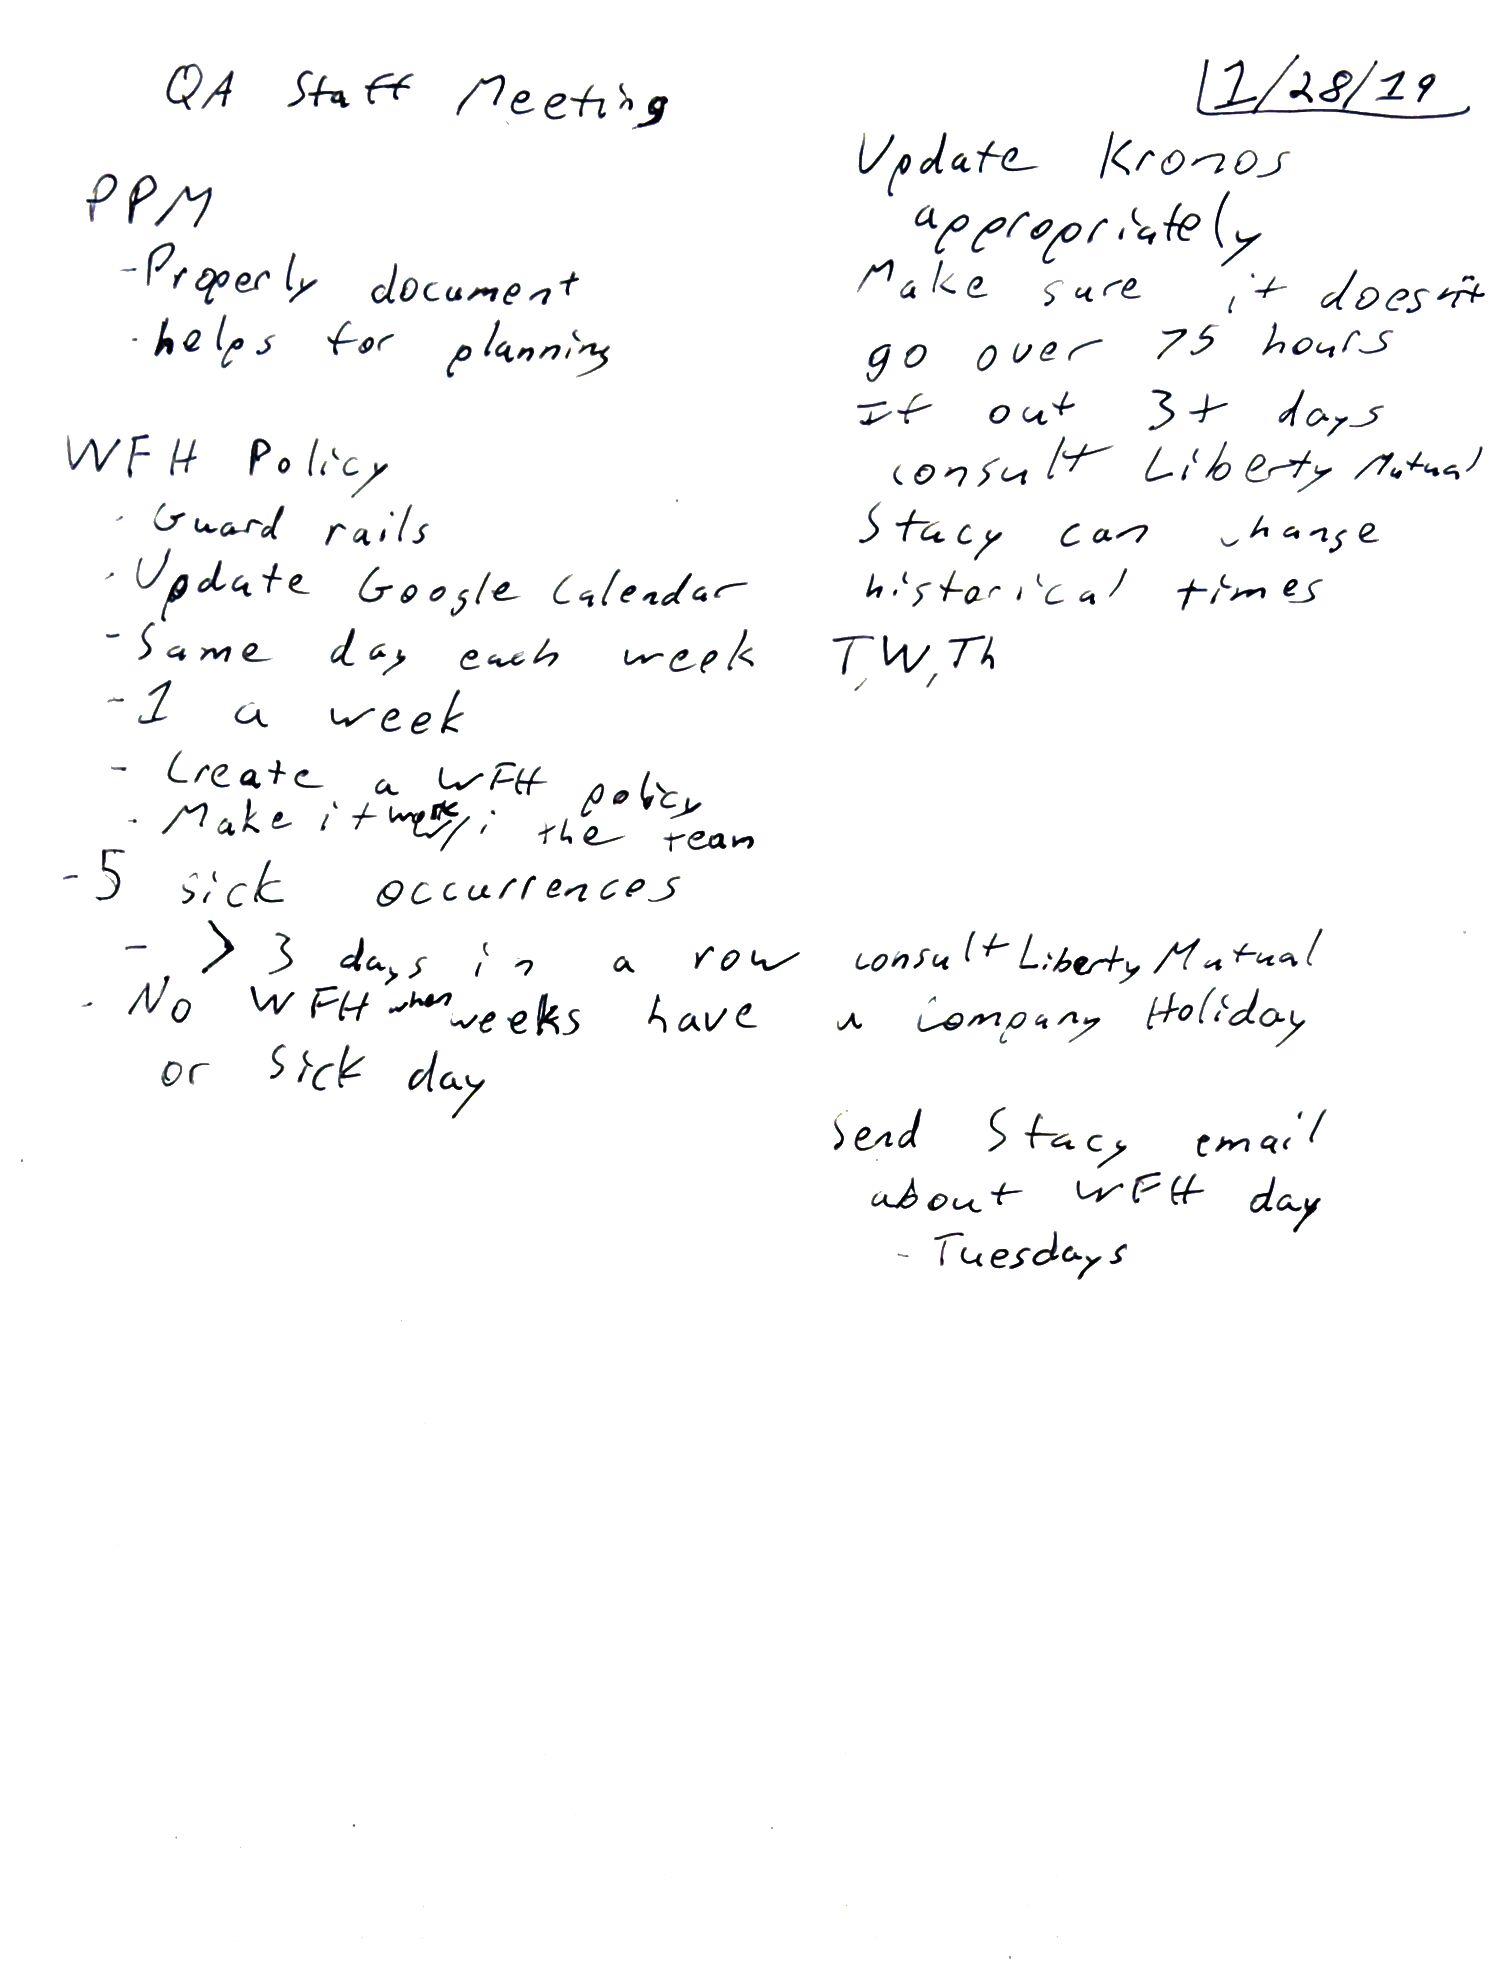 QA Staff Meeting
1/28/19
PPM
- Properly document
- helps for planning
WFH Policy
- Guard rails
- Update Google Calendar
- Same day each week T, W, Th
- 1 a week
- Create a WFH policy
- Make it work w/i the team
- 5 sick occurrences
- > 3 days in a row consult Liberty Mutual
- No WFH when weeks have a Company Holiday
or sick day
Update Kronos
appropriately
Make sure it doesn't
go over 75 hours
If out 3+ days
consult Liberty Mutual
Stacy can change
historical times
Send Stacy email
about WFH day
- Tuesdays